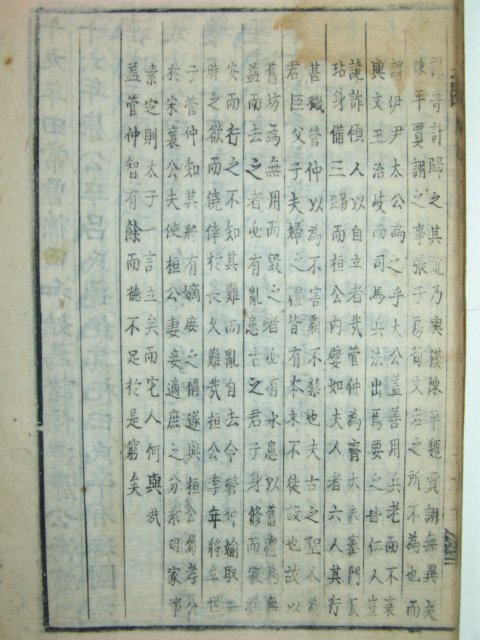 謀奇計歸之其說乃與漢陳平魏賈詡無異夫
陳平賈詡之事張子房荀文若之所不為也而
謂伊尹太公為之乎太公蓋善用兵老而不衰
與文王治岐而司馬兵法出焉要之皆仁人豈
詭詐傾人以自立者哉管仲為齊大夫塞門反
玷身備三歸而桓公內嬖如夫人者六人其行
甚穢管仲以為不害霸不禁也夫古之聖人為
君臣父子夫婦之禮皆有本末不徒設也故以
舊坊為無用而毀之者必有水患以舊禮為無
益而去之者必有亂患古之君子身修而家治
安而行之不知其難而亂自去今管仲媮取一
時之欲而僥倖於長久難哉桓公季年將立世
子管仲知其將有嫡庶之禍遂與桓公屬孝公
於宋襄公夫使桓公妻妾適庶之分素明家事
素定則太子一言立矣而宅人何與哉
蓋管仲智有餘而德不足於是窮矣